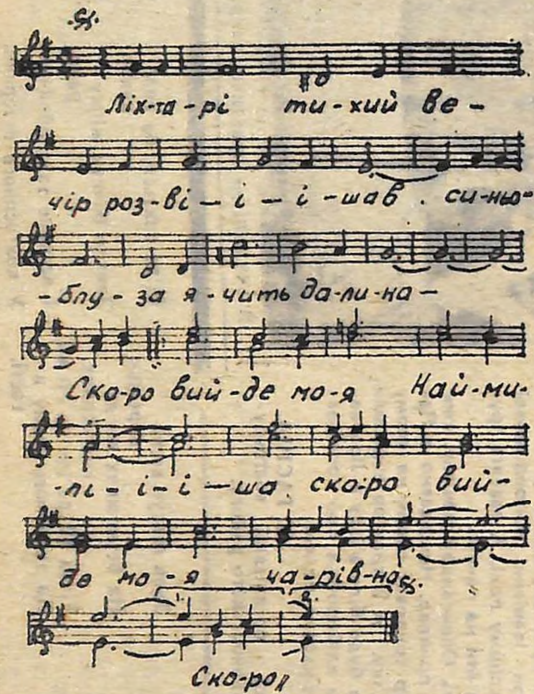 Ліх-та-рі ти-хий ве-
чір роз-ві-і-і-шав. си-ньо-
-блу-за я-чить да-ли-на-
Ско-ро вий-де мо-я Най-ми-
-лі-і-і-ша ско-ро вий-
де мо-я ча-рів-на
Ско-ро